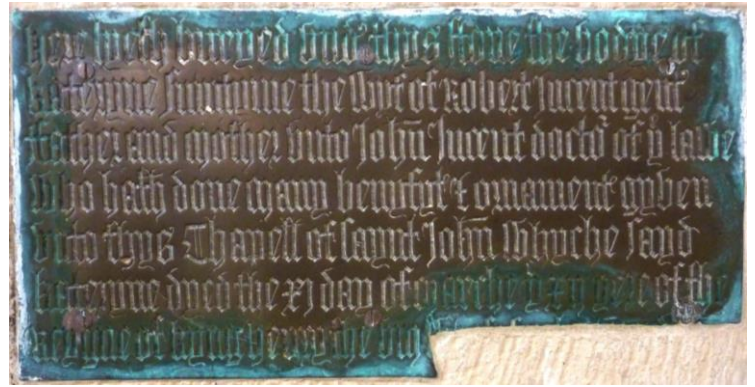 here lyeth buryed und' thys stone the bodye of
katerine sumtyme the wyf of Robert Incent gent
ffather and mother unto John Incent doctor of y lawe
who hath done many benyfyt & ornament gyven
unto thys Chapell of saynt John whyche sayd
katerine dyed the xj day of marche y xij yere of the
reygne of kyng henry the viij